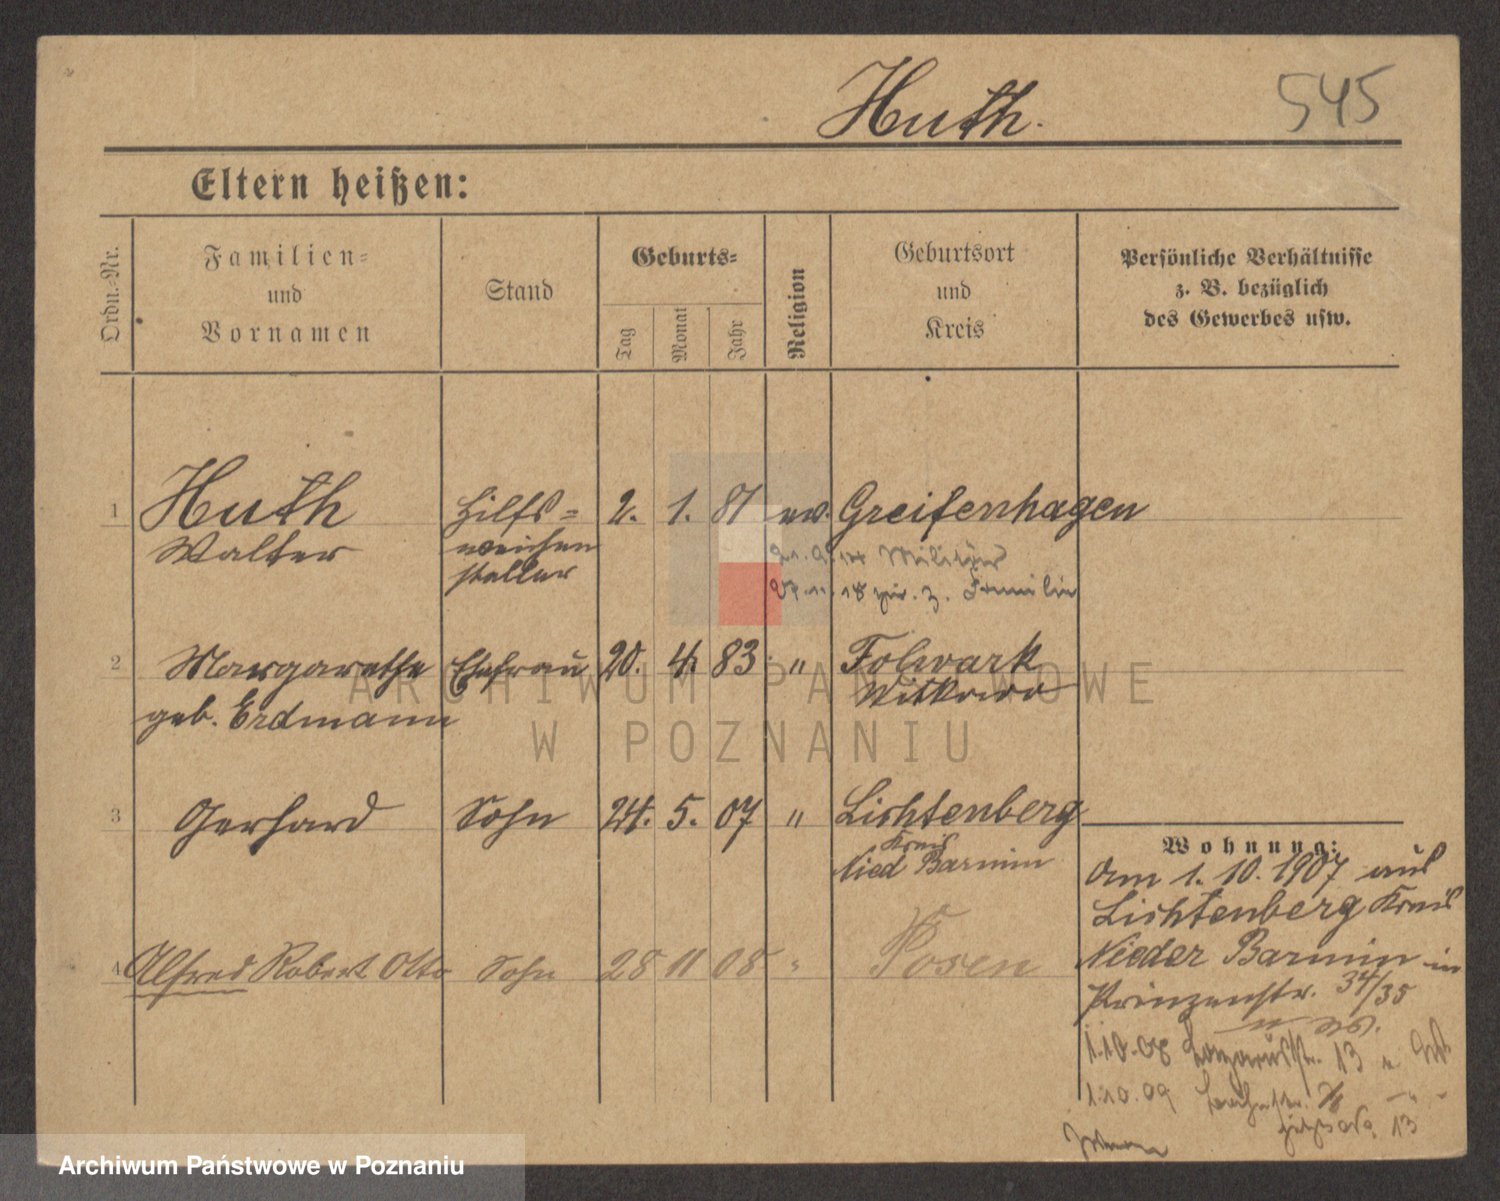 Huth.
545
Eltern heißen:
Ordn.-Nr.
Familien-
und
Vornamen
Stand
Geburts-
Tag
Monat
Jahr
Religion
Geburtsort
und
Kreis
Persönliche Verhältnisse
z. B. bezüglich
des Gewerbes usw.
1 Huth Hilfs- 2. 1. 81 ev. Greifenhagen
Walter weichen
steller
Militär
18 z. Familie
2 Margarethe Ehefrau 20. 4. 83 " Folwark
geb. Erdmann Witkowo
3 Gerhard Sohn 24. 5. 07 " Lichtenberg
Kreis
Nied Barnim
4 Alfred Robert Otto Sohn 28 11 08 " Posen
Wohnung:
Am 1. 10. 1907 aus
Lichtenberg Kreis
Nieder Barnim in
Prinzenstr. 34/35
1.10.08 Lazarusstr. 13
1.10.09
13
ARCHIWUM PAŃSTWOWE
W POZNANIU
Archiwum Państwowe w Poznaniu